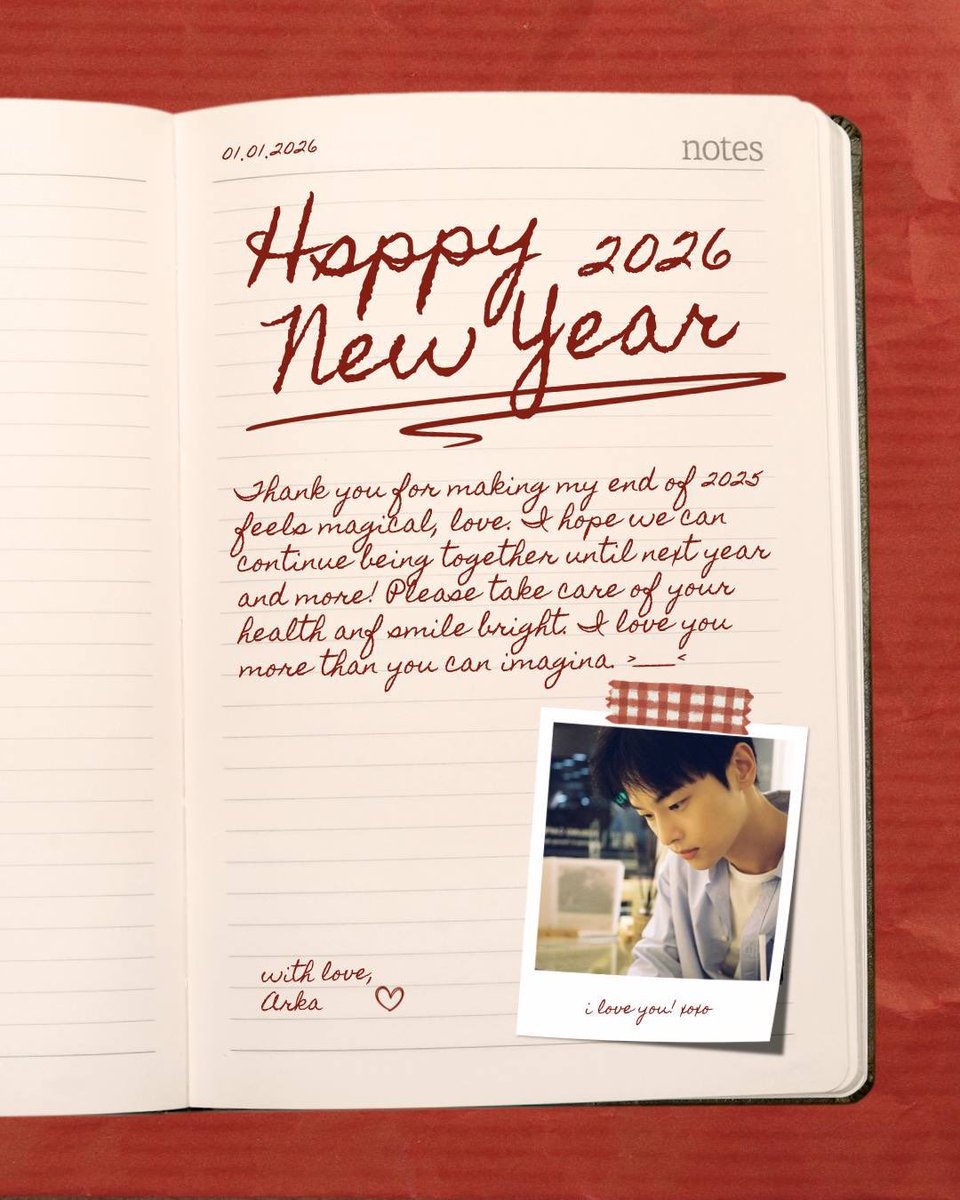 01.01.2026
notes
Happy 2026
New Year
Thank you for making my end of 2025
feels magical, love. I hope we can
continue being together until next year
and more! Please take care of your
health anf smile bright. I love you
more than you can imagina. >___<
with love,
Arka
i love you! xoxo